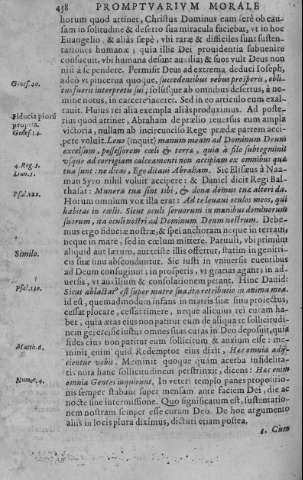 458 PROMPTVARIVM MORALE
horum quod attinet, Christus Dominus eam serè ob causam
in solitudine & deserto sua miracula faciebat, vt in hoc
Euangelio, & aliàs sępè, vbi raræ & difficiles sunt sustentationes
humanæ; quia illic Dei prouidentia subuenire
consueuit, vbi humana desunt auxilia; & suos vult Deus non
nisi à se pendere. Permisit Deus ad extrema deduci Ioseph,
Gene. 40.
adeo vt pincerna quoque, succedentibus rebus prosperis, oblitus
fuerit interpretis sui, solusque ab omnibus desertus, à nemine
notus, in carcere iaceret. Sed in eo articulo eum exaltauit.
Plures rei alia exempla aliàs produximus. Ad posterius
quod attinet, Abraham de prælio reuersus cum ampla
Fiducia piorũ
propria.
Gen. 14.
victoria, nullam ab incircunciso Rege prædæ partem accipere
voluit. Leuo (inquit) manum meam ad Dominum Deum
excelsum, possessorem cœli & terra, quia à filo subtegminis
vsque ad corrigiam calceamenti non accipiam ex omnibus quæ
tua sunt: ne dicas, Ego ditaui Abraham. Sic Elisæus à Naaman
4. Reg. 5.
Syro nihil voluit accipere: & Daniel dicit Regi Balthasar:
Munera tua sint tibi, & dona domus tuæ alteri da.
Horum omnium vox illa erat: Ad te leuaui oculos meos, qui
Psal. 122.
habitas in cœlis. Sicut oculi seruorum in manibus dominorum
suorum, ita oculi nostri ad Dominum Deum nostrum. Debemus
ergo fiduciæ nostræ, & spei anchoram neque in terram,
neque in mare, sed in cœlum mittere. Paruuli, vbi primùm
Simile.
aliquid aut fartum, aut triste illis offertur, statim in genitricis
suæ sinu absconduntur. Sic iusti in vniuersis euentibus
ad Deum confugiunt; in prosperis, vt gratias agant; in aduersis,
vt auxilium & consolationem petant. Hinc Dauid:
Psal. 130.
Sicut ablactatus est super matre sua, ita retributio in anima mea.
id est, quemadmodum infans in matris suæ sinu proiectus,
cessat plorare, cessat timere, neque alicuius rei curam habet,
quia ætas eius non patitur eum de aliqua re sollicitudinem
gerere: sic iustus omnes suas curas in Deo deposuit, quia
fides eius non patitur eum sollicitum & anxium esse: meminit
Matth. 6.
enim quid Redemptor eius dixit, Hæc omnia adijcientur
vobis. Meminit quoque quàm acerbis infidelitatis
nota hanc sollicitudinem perstrinxit; dicens: Hæc enim
omnia Gentes inquirunt. In veteri templo panes propositionis
Nume. 4.
semper stabant super mensam ante faciem Dei, die ac
nocte sine intermissione. Quo significatum est, sustentationem
nostram semper esse curam Deo. De hoc argumento
aliis in locis plura diximus, dicturi etiam postea.
2. Cùm